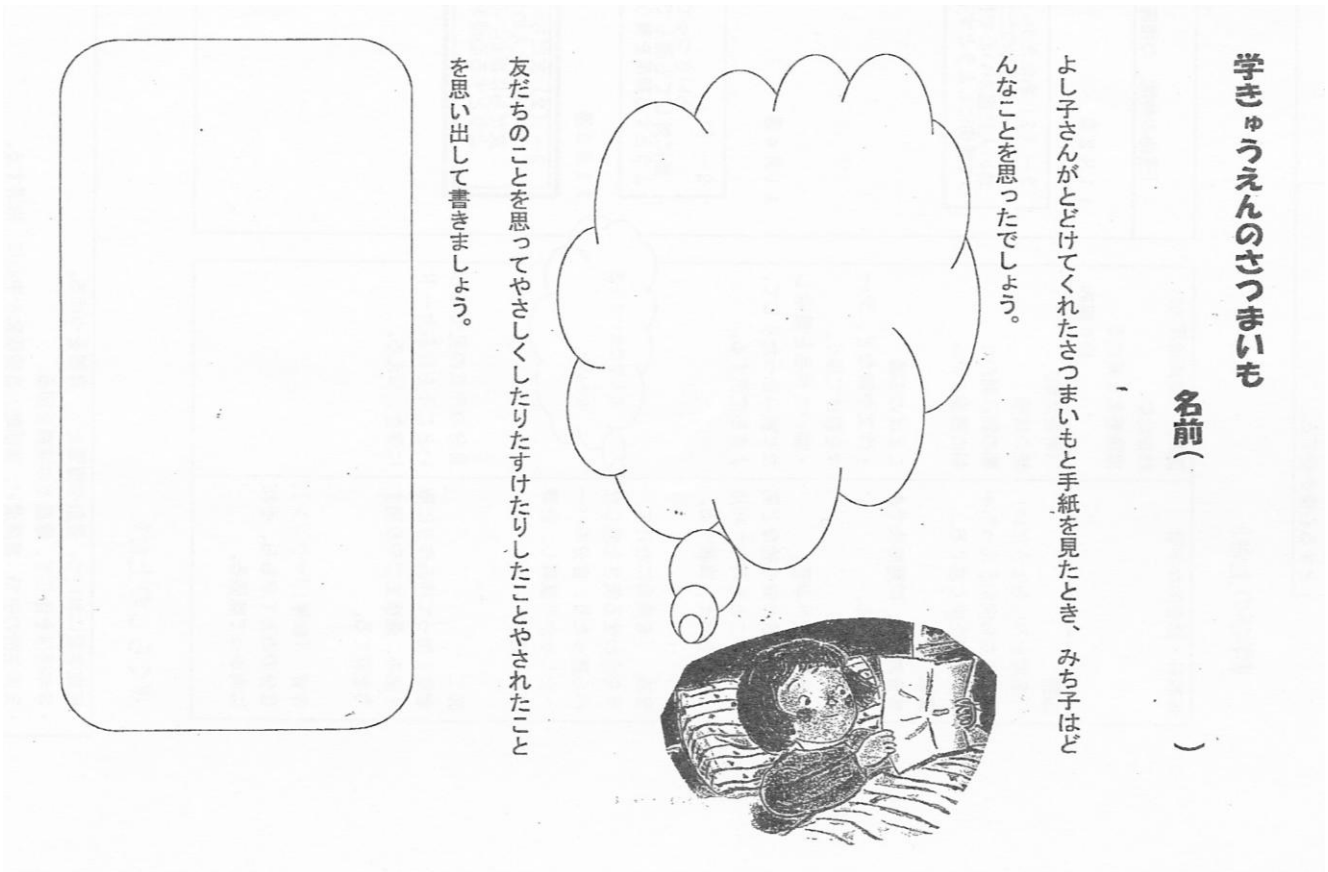 学きゅうえんのさつまいも
名前(　　　)
よし子さんがとどけてくれたさつまいもと手紙を見たとき、みち子はど
んなことを思ったでしょう。
友だちのことを思ってやさしくしたりたすけたりしたことやされたこと
を思い出して書きましょう。